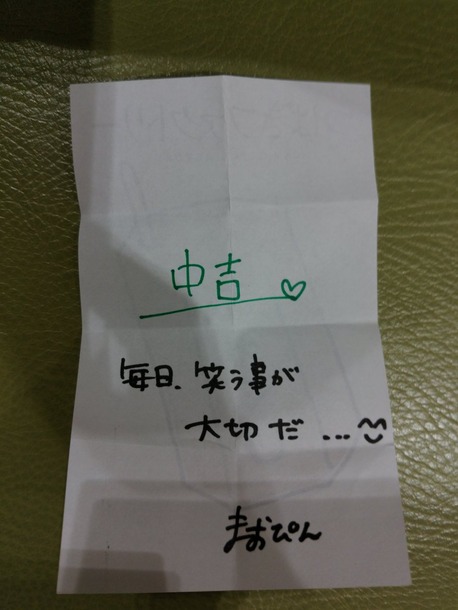 中吉♡
毎日、笑う事が
大切だ...
まおぴん